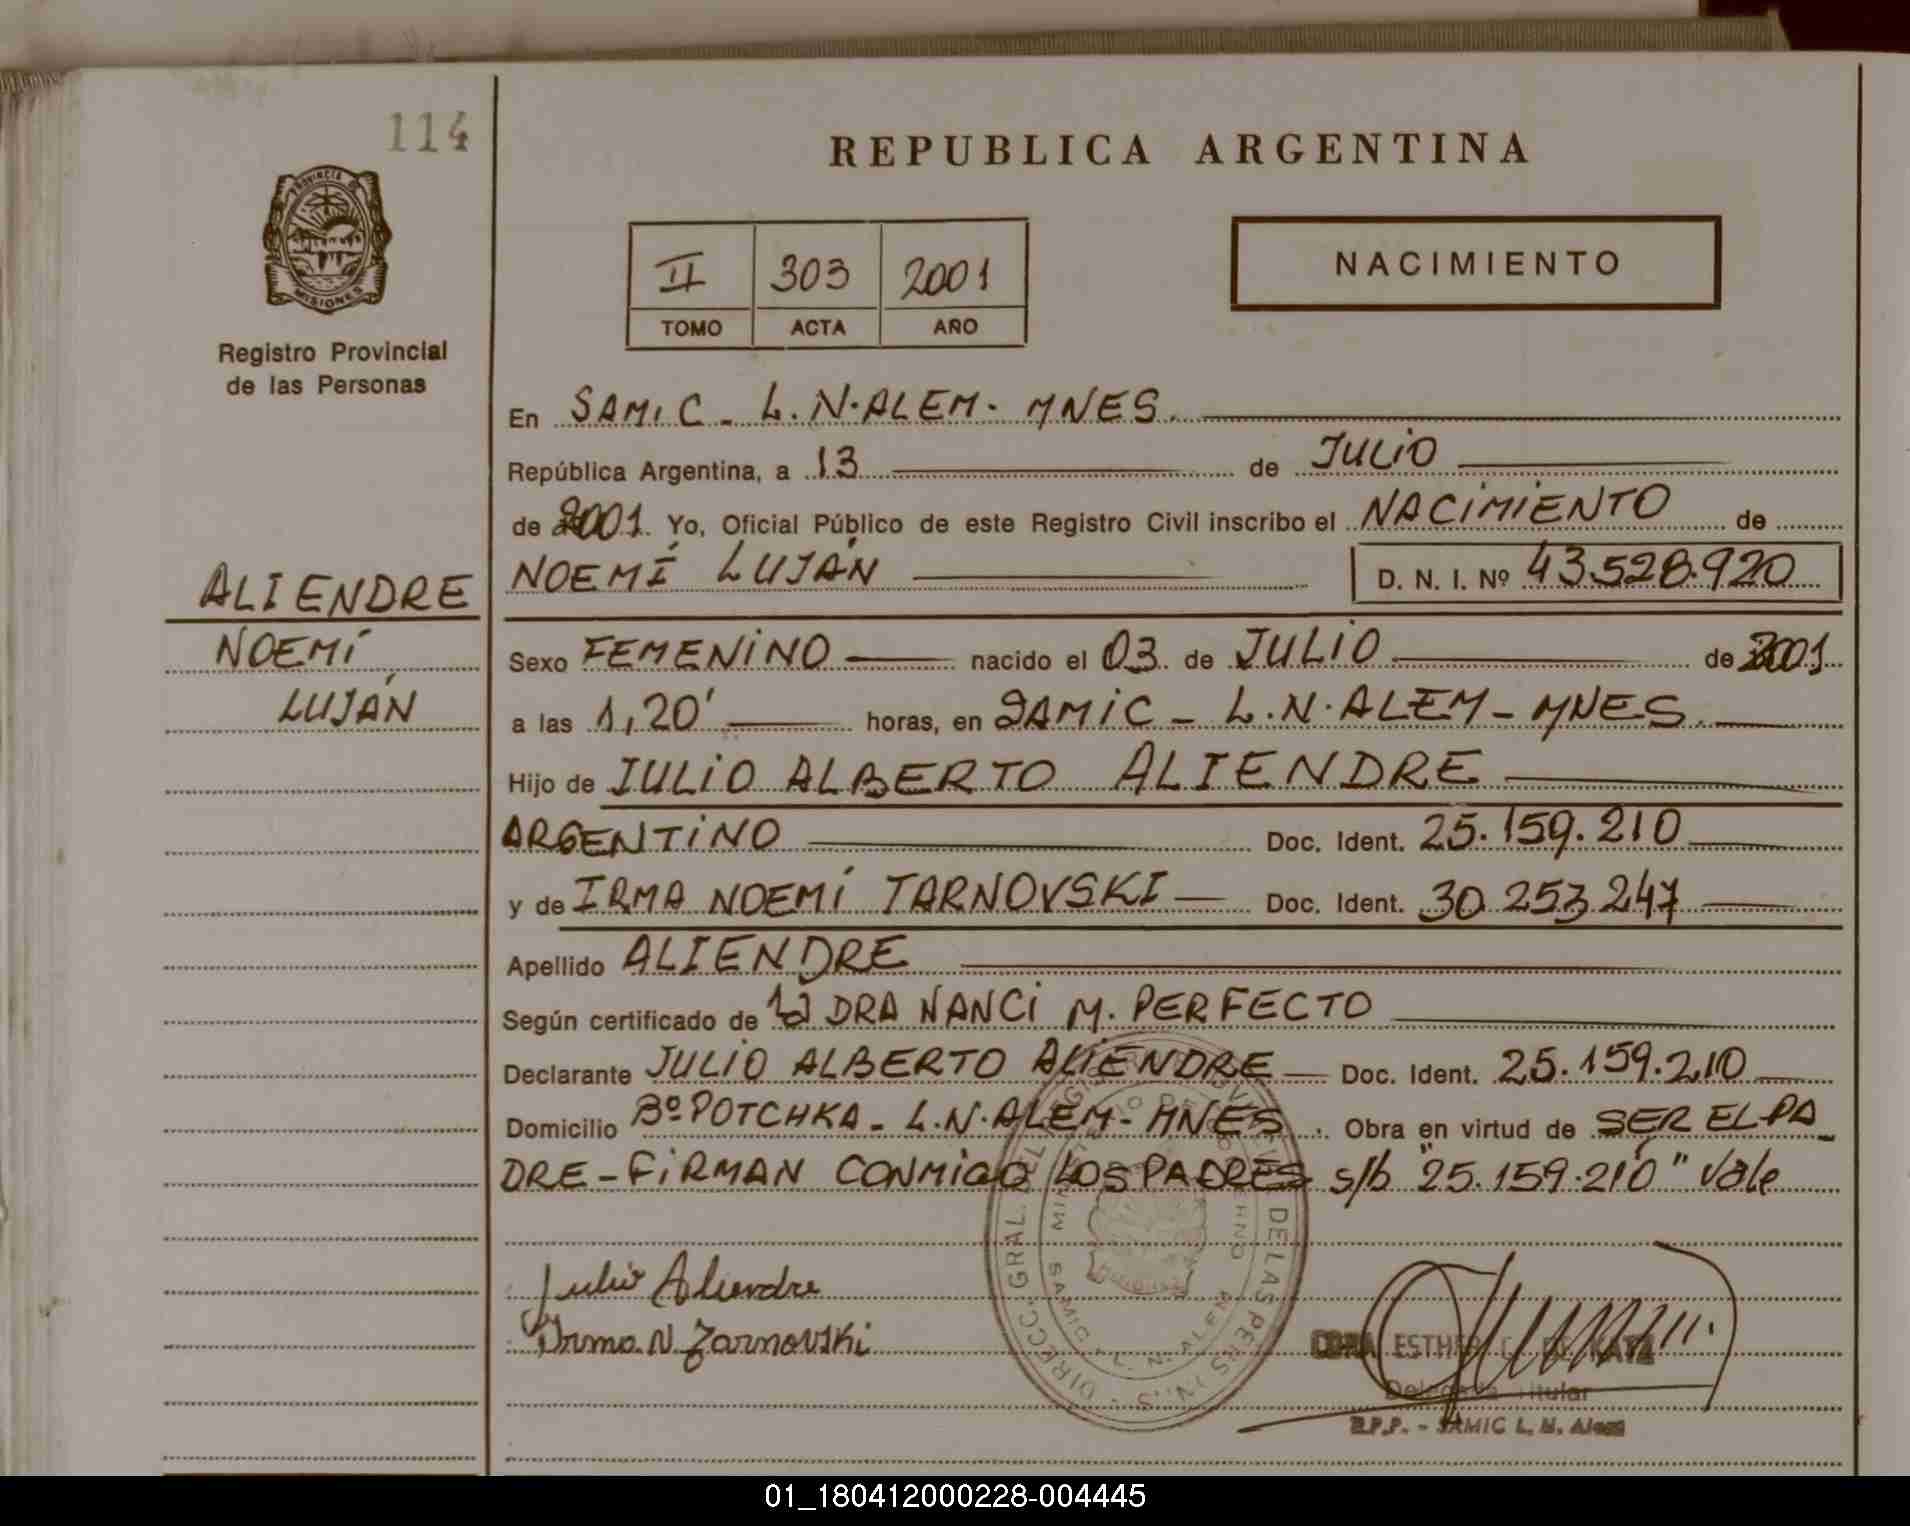 114
REPUBLICA ARGENTINA
PROVINCIA DE
MISIONES
Registro Provincial
de las Personas
II 303 2001
TOMO ACTA AÑO
NACIMIENTO
En SAMIC - L.N.ALEM - MNES.
República Argentina, a 13 de JULIO
de 2001. Yo, Oficial Público de este Registro Civil inscribo el NACIMIENTO de
NOEMÍ LUJÁN D. N. I. Nº 43.528.920
ALIENDRE
NOEMÍ
LUJÁN
Sexo FEMENINO nacido el 03 de JULIO de 2001
a las 1,20' horas, en SAMIC - L.N.ALEM - MNES.
Hijo de JULIO ALBERTO ALIENDRE
ARGENTINO Doc. Ident. 25.159.210
y de IRMA NOEMÍ TARNOVSKI Doc. Ident. 30.253.247
Apellido ALIENDRE
Según certificado de la DRA NANCI M. PERFECTO
Declarante JULIO ALBERTO ALIENDRE Doc. Ident. 25.159.210
Domicilio Bº POTCHKA - L.N.ALEM - MNES. Obra en virtud de SER EL PA_
DRE - FIRMAN CONMIGO LOS PADRES s/b "25.159.210" Vale
Julio Aliendre
Irma N. Zarnovski
DIRECC. GRAL. DEL DE LAS PERSONAS
SAMIC - L. N. ALEM
CORA ESTHER DE KATZ
Delegada Titular
R.P.P. - SAMIC L. N. Alem
01_180412000228-004445